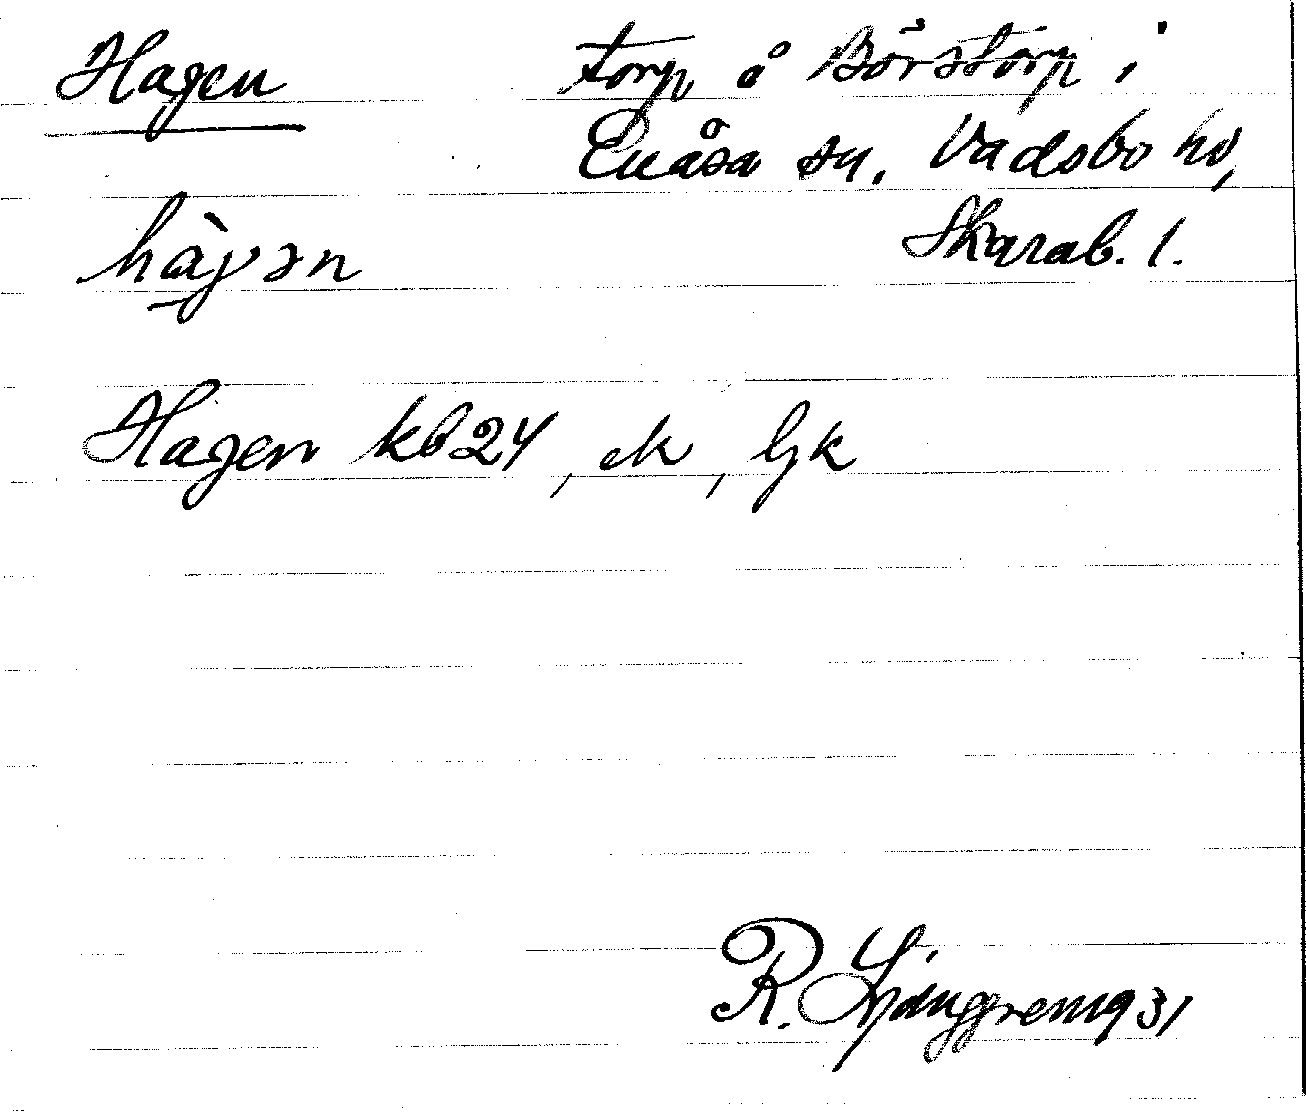 Hagen torp å Börstorp i
Enåsa sn. Vadsbo hd,
Skarab. l.
hàɣən
Hagen kb24, ek, Gk
R. Ljunggren 1931